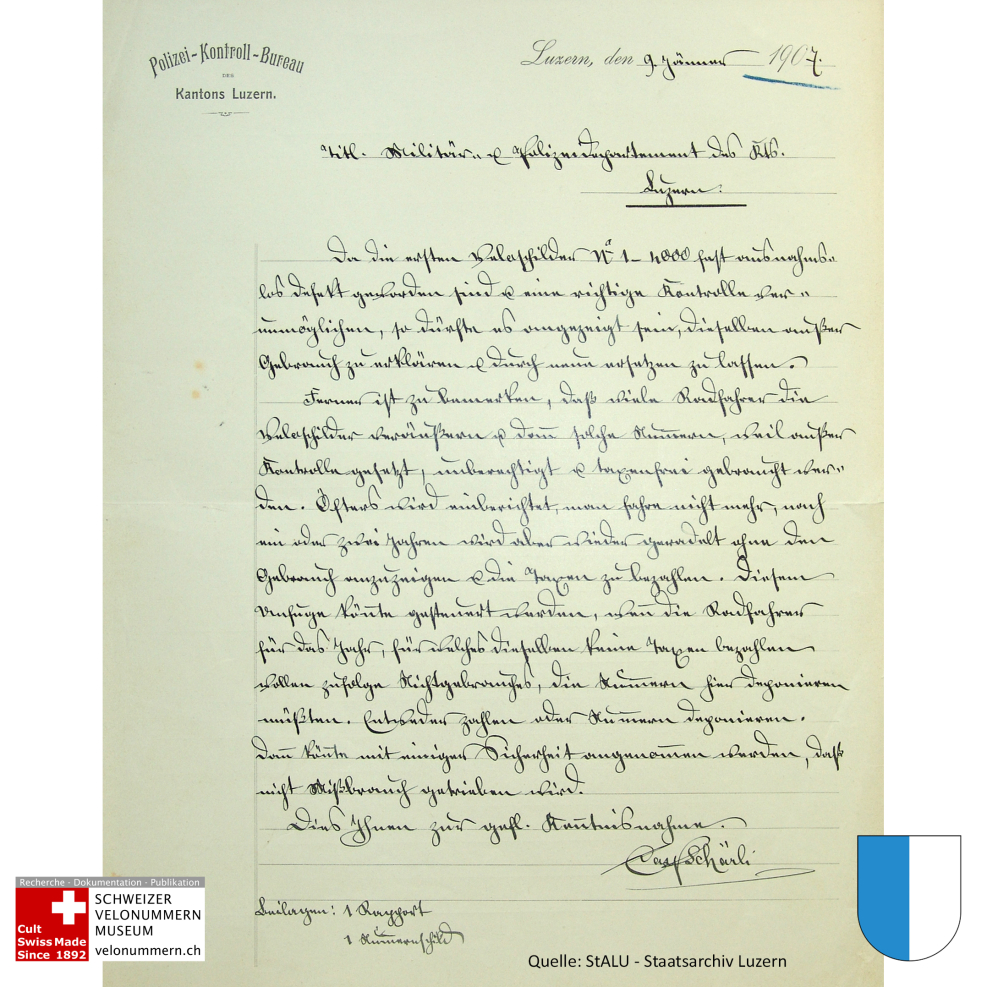 Polizei-Kontroll-Bureau
DES
Kantons Luzern.
Luzern, den 9. Jänner 1907.
Titl. Militär- u Polizeidepartement des Kts.
Luzern.
Da die ersten Veloschilder No 1-4000 fast ausnahms-
los defekt geworden sind u eine richtige Kontrolle ver-
unmöglichen, so dürfte es angezeigt sein, dieselben außer
Gebrauch zu erklären u durch neue ersetzen zu lassen.
Ferner ist zu bemerken, daß viele Radfahrer die
Veloschilder veräußern u dann solche Nummern, weil außer
Kontrolle gesetzt, unberechtigt u taxenfrei gebraucht wer-
den. Öfters wird einberichtet, man fahre nicht mehr, nach
ein oder zwei Jahren wird aber wieder geradelt ohne den
Gebrauch anzuzeigen u die Taxen zu bezahlen. Diesem
Unfuge könnte gesteuert werden, wenn die Radfahrer
für das Jahr, für welches dieselben keine Taxen bezahlen
wollen zufolge Nichtgebrauches, die Nummern hier deponieren
müßten. Entweder zahlen oder Nummern deponieren.
Dann könnte mit einiger Sicherheit angenommen werden, daß
nicht Mißbrauch getrieben wird.
Dies Ihnen zur gefl. Kenntnisnahme.
Schärli
Beilagen: 1 Rapport
1 Nummernschild
Recherche - Dokumentation - Publikation
Cult
Swiss Made
Since 1892
SCHWEIZER
VELONUMMERN
MUSEUM
velonummern.ch
Quelle: StALU - Staatsarchiv Luzern